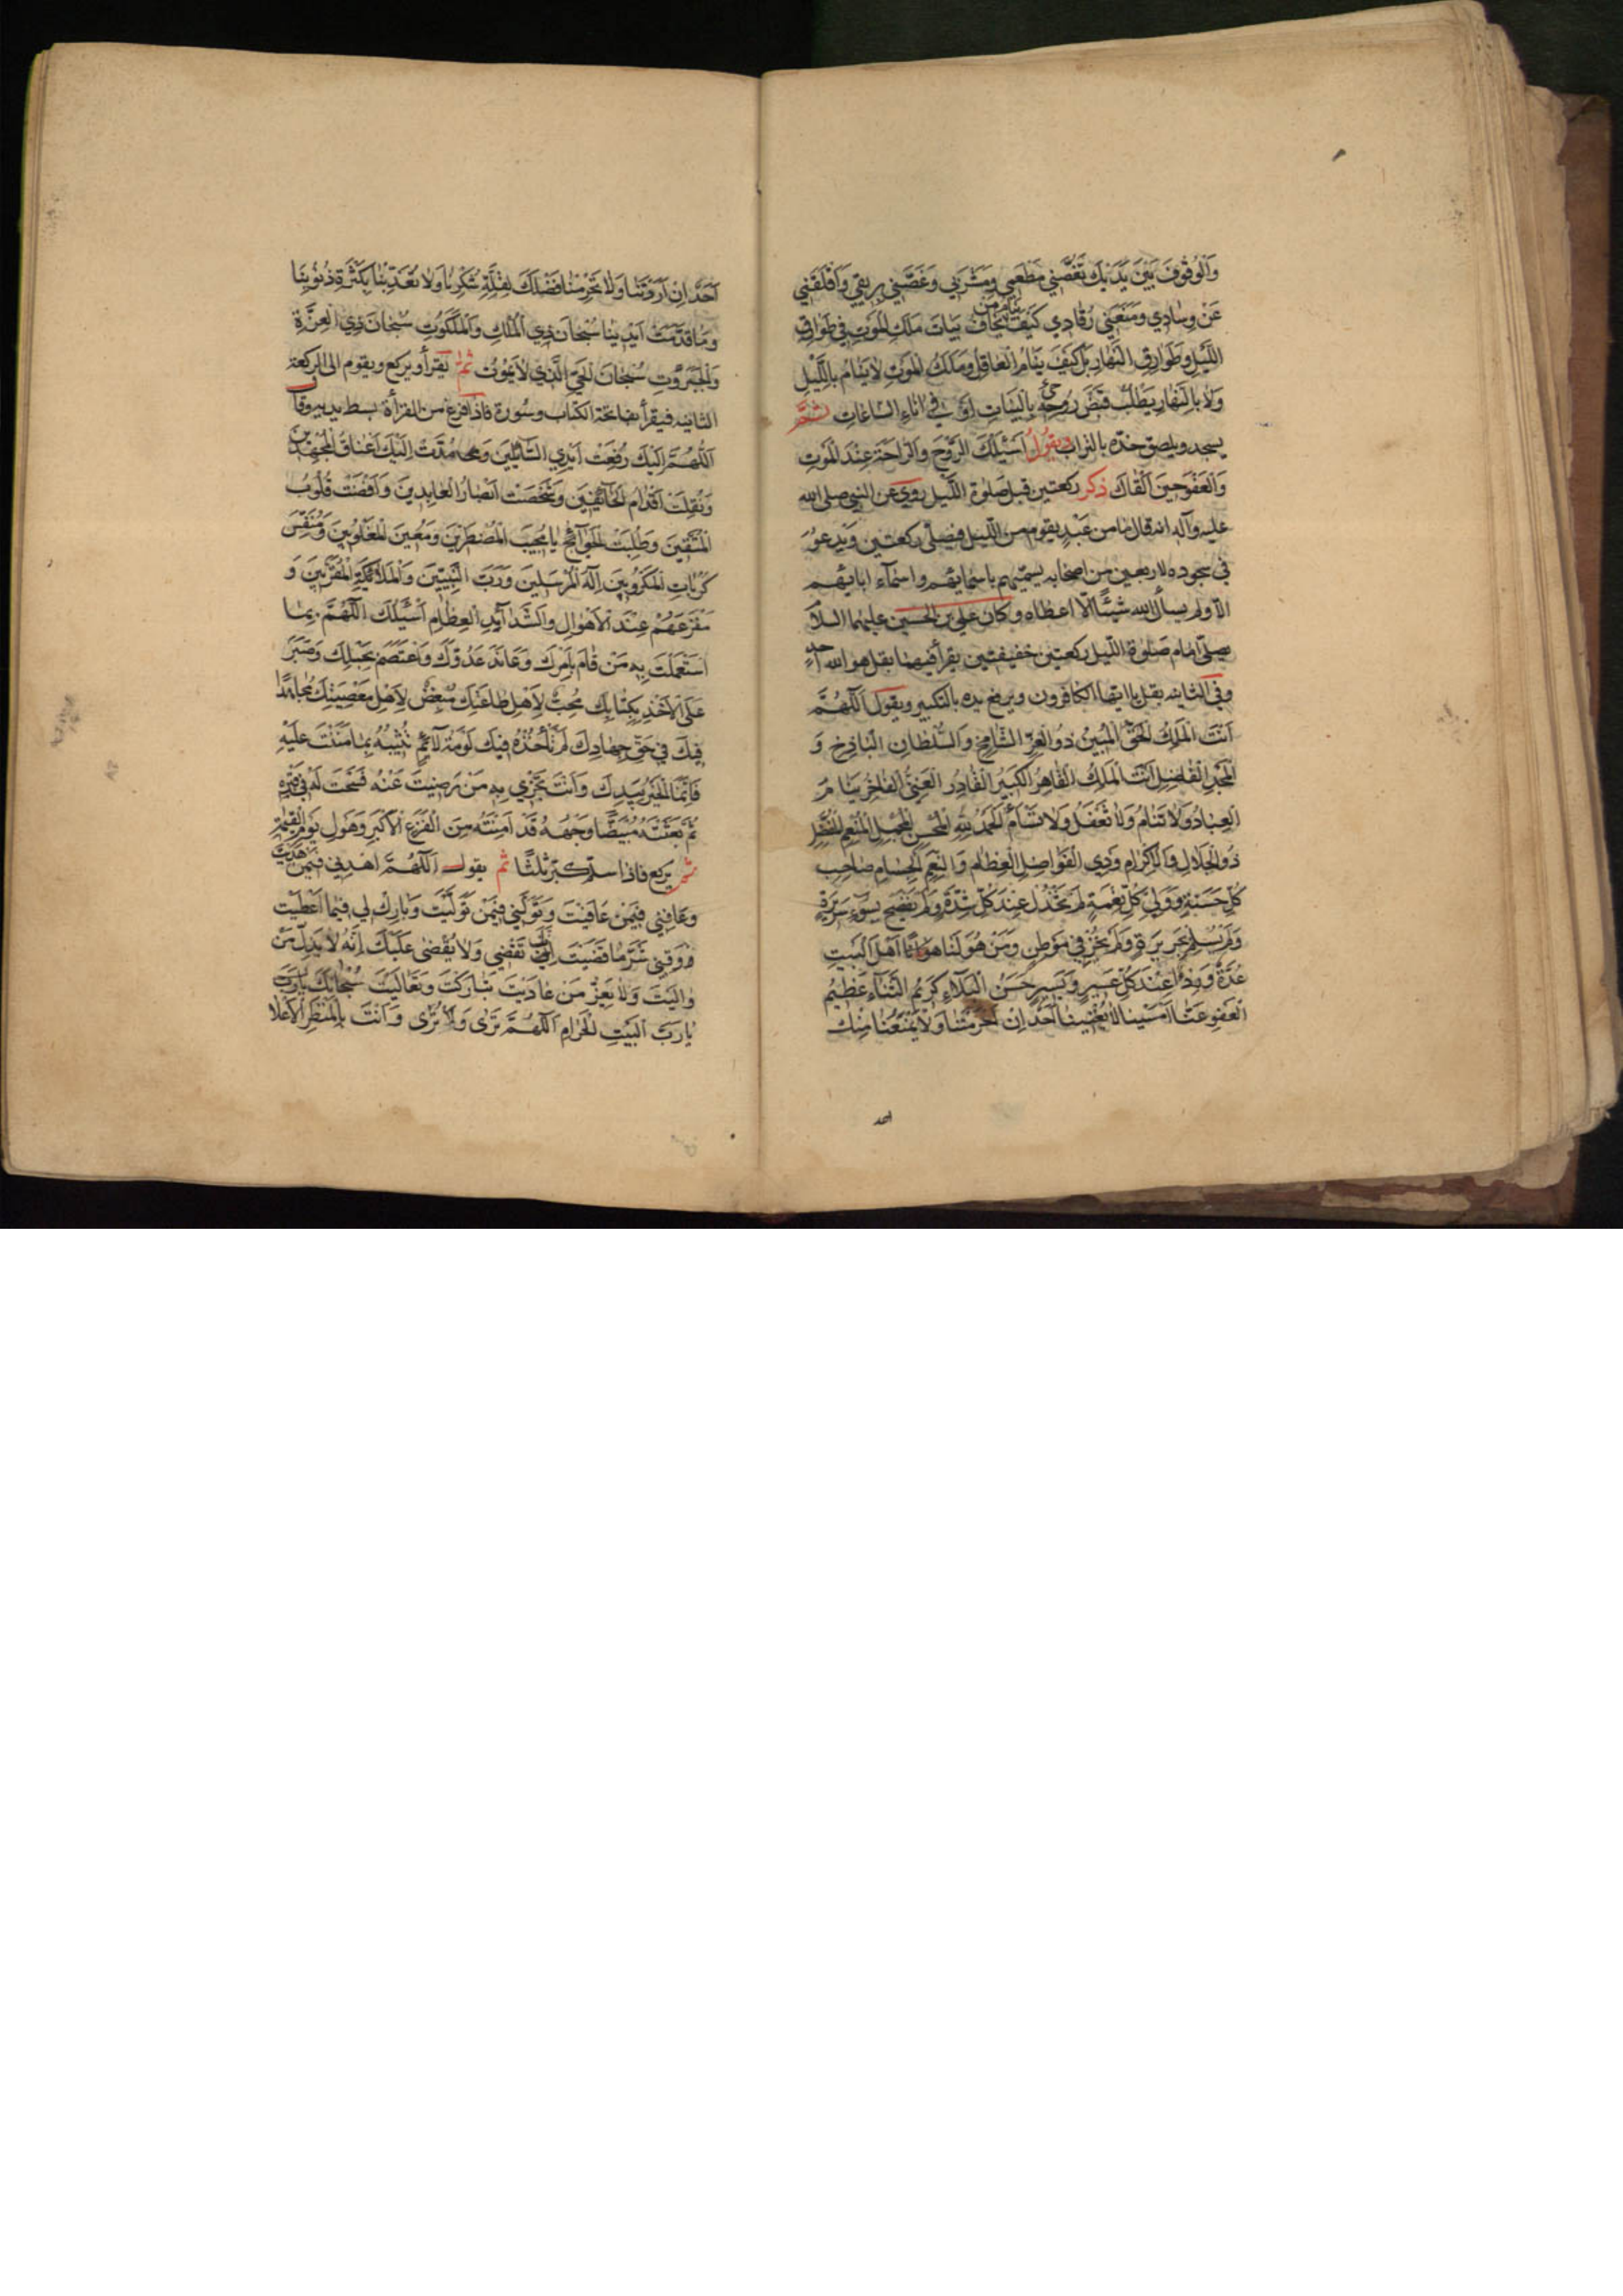 وَالْوُقُوفَ بَيْنَ يَدَيْكَ نَغَّصَنِي مَطْعَمِي وَمَشْرَبِي وَغَصَّنِي بِرِيقِي وَأَقْلَقَنِي
عَنْ وِسَادِي وَمَنَعَنِي رُقَادِي كَيْفَ يَنَامُ مَنْ يَخَافُ بَيَاتَ مَلَكِ الْمَوْتِ فِي طَوَارِقِ
اللَّيْلِ وَطَوَارِقِ النَّهَارِ بَلْ كَيْفَ يَنَامُ الْعَاقِلُ وَمَلَكُ الْمَوْتِ لَا يَنَامُ بِاللَّيْلِ
وَلَا بِالنَّهَارِ يَطْلُبُ قَبْضَ رُوحِي بِالْبَيَاتِ أَوْ فِي آنَاءِ السَّاعَاتِ ثُمَّ
يسجد ويلصق خدّه بالتراب ويقول أَسْئَلُكَ الرَّوْحَ وَالرَّاحَةَ عِنْدَ الْمَوْتِ
وَالْعَفْوَ حِينَ أَلْقَاكَ ذكر ركعتين قبل صلوة الليل روي عن النبي صلى الله
عليه وآله انه قال ما من عبد يقوم من الليل فيصلي ركعتين ويدعو
في سجوده لاربعين من اصحابه يسميهم باسمائهم واسماء ابائهم
الا ولم يسأل الله شيئا الا اعطاه وكان علي بن الحسين عليهما السلا
يصلي امام صلوة الليل ركعتين خفيفتين يقرأ فيهما بقل هو الله احد
وفي الثانيه بقل يا ايها الكافرون ويرفع يده بالتكبير ويقول اللّهُمَّ
أَنْتَ الْمَلِكُ الْحَقُّ الْمُبِينُ ذُو الْعِزِّ الشَّامِخِ وَالسُّلْطَانِ الْبَاذِخِ وَ
الْمَجْدِ الْفَاضِلِ أَنْتَ الْمَلِكُ الْقَاهِرُ الْكَبِيرُ الْقَادِرُ الْغَنِيُّ الْفَاخِرُ يَنَامُ
الْعِبَادُ وَلَا تَنَامُ وَلَا تَغْفَلُ وَلَا تَسْأَمُ الْحَمْدُ لِلَّهِ الْمُحْسِنِ الْمُجْمِلِ الْمُنْعِمِ الْمُفْضِلِ
ذُو الْجَلَالِ وَالْإِكْرَامِ وَذِي الْفَوَاضِلِ الْعِظَامِ وَالنِّعَمِ الْجِسَامِ وَصَاحِبِ
كُلِّ حَسَنَةٍ وَوَلِيِّ كُلِّ نِعْمَةٍ لَمْ يَخْذُلْ عِنْدَ كُلِّ شِدَّةٍ وَلَمْ يَفْضَحْ بِسُوءِ سَرِيرَةٍ
وَلَمْ يُسْلِمْ بِجَرِيرَةٍ وَلَمْ يُخْزِ فِي مَوْطِنٍ وَمَنْ هُوَ لَنَا أَهْلَ الْبَيْتِ
عُدَّةٌ وَرِدْءٌ عِنْدَ كُلِّ عَسِيرٍ وَيَسِيرٍ حَسَنُ الْبَلَاءِ كَرِيمُ الثَّنَاءِ عَظِيمُ
الْعَفْوِ عَنَّا أَمْسَيْنَا لَا يُغْنِينَا أَحَدٌ إِنْ حَرَمْتَنَا وَلَا يَمْنَعُنَا مِنْكَ
احد
أَحَدٌ إِنْ أَرَدْتَنَا وَلَا تَحْرِمْنَا فَضْلَكَ لِقِلَّةِ شُكْرِنَا وَلَا تُعَذِّبْنَا بِكَثْرَةِ ذُنُوبِنَا
وَمَا قَدَّمَتْ أَيْدِينَا سُبْحَانَ ذِي الْمُلْكِ وَالْمَلَكُوتِ سُبْحَانَ ذِي الْعِزَّةِ
وَالْجَبَرُوتِ سُبْحَانَ الْحَيِّ الَّذِي لَا يَمُوتُ ثم يقرأ ويركع ويقوم الى الركعة
الثانيه فيقرأ بفاتحة الكتاب وسورة فاذا فرغ من القراءة بسط يديه وقال
اللّهُمَّ إِلَيْكَ رُفِعَتْ أَيْدِي السَّائِلِينَ وَمُدَّتْ إِلَيْكَ أَعْنَاقُ الْمُجْتَهِدِينَ
وَنُقِلَتْ أَقْدَامُ الْخَائِفِينَ وَشَخَصَتْ أَبْصَارُ الْعَابِدِينَ وَأَفْضَتْ قُلُوبُ
الْمُتَّقِينَ وَطُلِبَتِ الْحَوَائِجُ يَا مُجِيبَ الْمُضْطَرِّينَ وَمُعِينَ الْمَغْلُوبِينَ وَمُنَفِّسَ
كُرُبَاتِ الْمَكْرُوبِينَ إِلَهَ الْمُرْسَلِينَ وَرَبَّ النَّبِيِّينَ وَالْمَلَائِكَةِ الْمُقَرَّبِينَ وَ
مَفْزَعَهُمْ عِنْدَ الْأَهْوَالِ وَالشَّدَائِدِ الْعِظَامِ أَسْئَلُكَ اللَّهُمَّ بِمَا
اسْتَعْمَلْتَ بِهِ مَنْ قَامَ بِأَمْرِكَ وَعَانَدَ عَدُوَّكَ وَاعْتَصَمَ بِحَبْلِكَ وَصَبَرَ
عَلَى الْأَخْذِ بِكِتَابِكَ مُحِبٌّ لِأَهْلِ طَاعَتِكَ مُبْغِضٌ لِأَهْلِ مَعْصِيَتِكَ مُجَاهِدًا
فِيكَ فِي حَقِّ جِهَادِكَ لَمْ تَأْخُذْهُ فِيكَ لَوْمَةُ لَائِمٍ تُثِيبُهُ بِمَا مَنَنْتَ عَلَيْهِ
فَإِنَّمَا الْخَيْرُ بِيَدِكَ وَأَنْتَ تَجْزِي بِهِ مَنْ رَضِيتَ عَنْهُ فَسَحْتَ لَهُ فِي قَبْرِهِ
ثُمَّ بَعَثْتَهُ مُبْيَضًّا وَجْهُهُ قَدْ آمَنْتَهُ مِنَ الْفَزَعِ الْأَكْبَرِ وَهَوْلِ يَوْمِ الْقِيَامَةِ
ثم يركع فاذا سلم كبر ثلثا ثم يقول اللّهُمَّ اهْدِنِي فِيمَنْ هَدَيْتَ
وَعَافِنِي فِيمَنْ عَافَيْتَ وَتَوَلَّنِي فِيمَنْ تَوَلَّيْتَ وَبَارِكْ لِي فِيمَا أَعْطَيْتَ
وَقِنِي شَرَّ مَا قَضَيْتَ إِنَّكَ تَقْضِي وَلَا يُقْضَى عَلَيْكَ إِنَّهُ لَا يَذِلُّ مَنْ
وَالَيْتَ وَلَا يَعِزُّ مَنْ عَادَيْتَ تَبَارَكْتَ وَتَعَالَيْتَ سُبْحَانَكَ يَا رَبَّ
يَا رَبَّ الْبَيْتِ الْحَرَامِ اللّهُمَّ تَرَى وَلَا تُرَى وَأَنْتَ بِالْمَنْظَرِ الْأَعْلَا